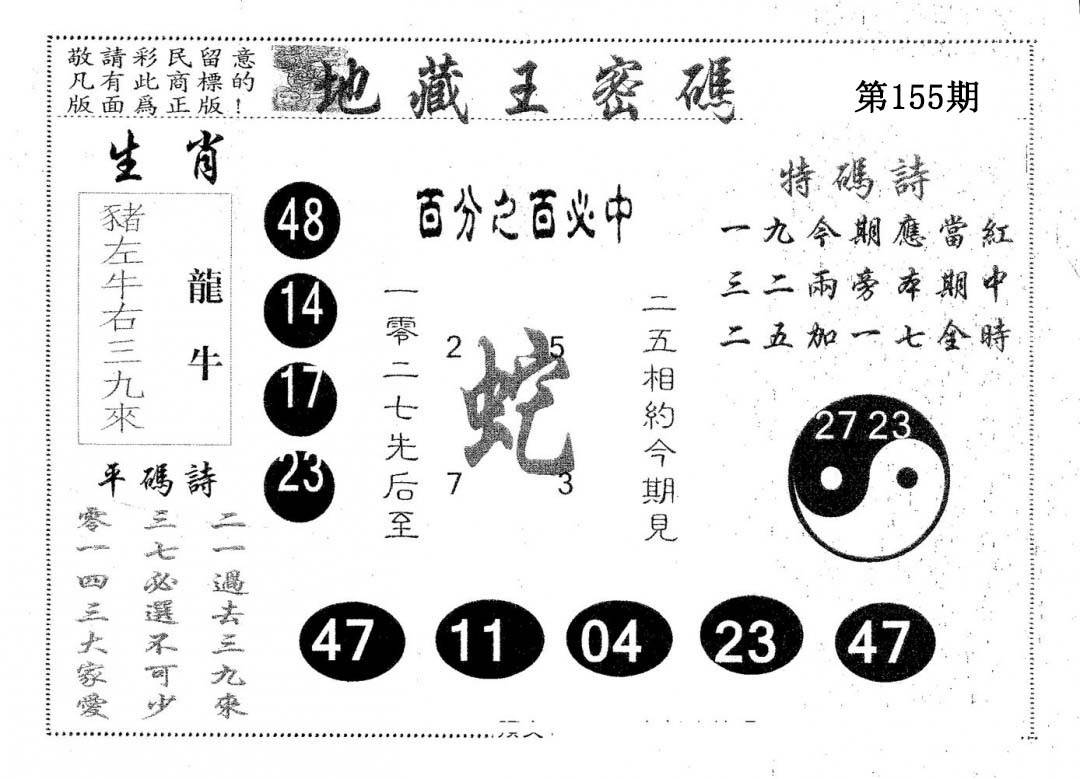 敬請彩民留意
凡有此商標的
版面爲正版!
地藏王密碼
第155期
生肖
豬左牛右三九來
龍牛
48
14
17
23
百分之百必中
一零二七先后至
2 5
蛇
7 3
二五相約今期見
特碼詩
一九今期應當紅
三二兩旁本期中
二五加一七全時
27 23
平碼詩
二一過去三九來
三七必選不可少
零一四三大家愛
47 11 04 23 47